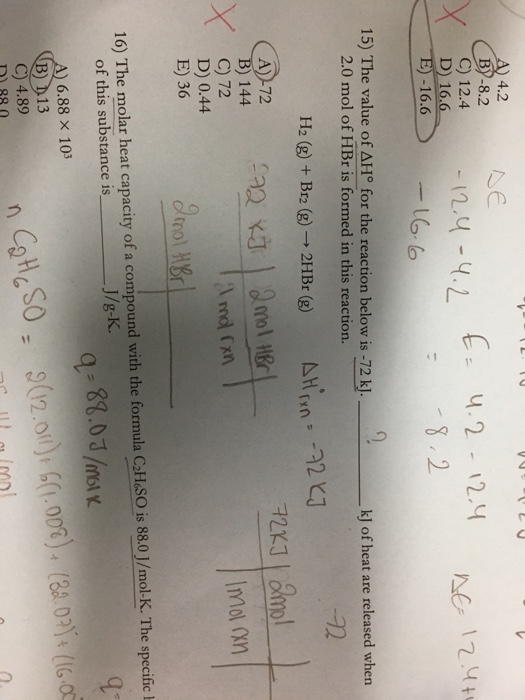 A) 4.2
B) -8.2
C) 12.4
D) 16.6
E) -16.6
ΔE
-12.4 - 4.2
-16.6
E = 4.2 - 12.4
= -8.2
ΔE = 12.4+
15) The value of ΔH° for the reaction below is -72 kJ. ______ kJ of heat are released when
?
2.0 mol of HBr is formed in this reaction.
-72
H₂ (g) + Br₂ (g) → 2HBr (g)
ΔH°rxn = -72 KJ
A) -72
B) 144
C) 72
D) 0.44
E) 36
-72 KJ | 2 mol HBr
1 mol rxn
2mol HBr
72KJ | 2mol
1mol rxn
16) The molar heat capacity of a compound with the formula C₂H₆SO is 88.0 J/mol-K. The specific
of this substance is ______ J/g-K.
q = 88.0 J/mol K
q=
A) 6.88 × 10³
B) 1.13
C) 4.89
D) 88.0
n C₂H₆SO = 2(12.011) + 6(1.008) + (32.07) + (16.00
g/mol